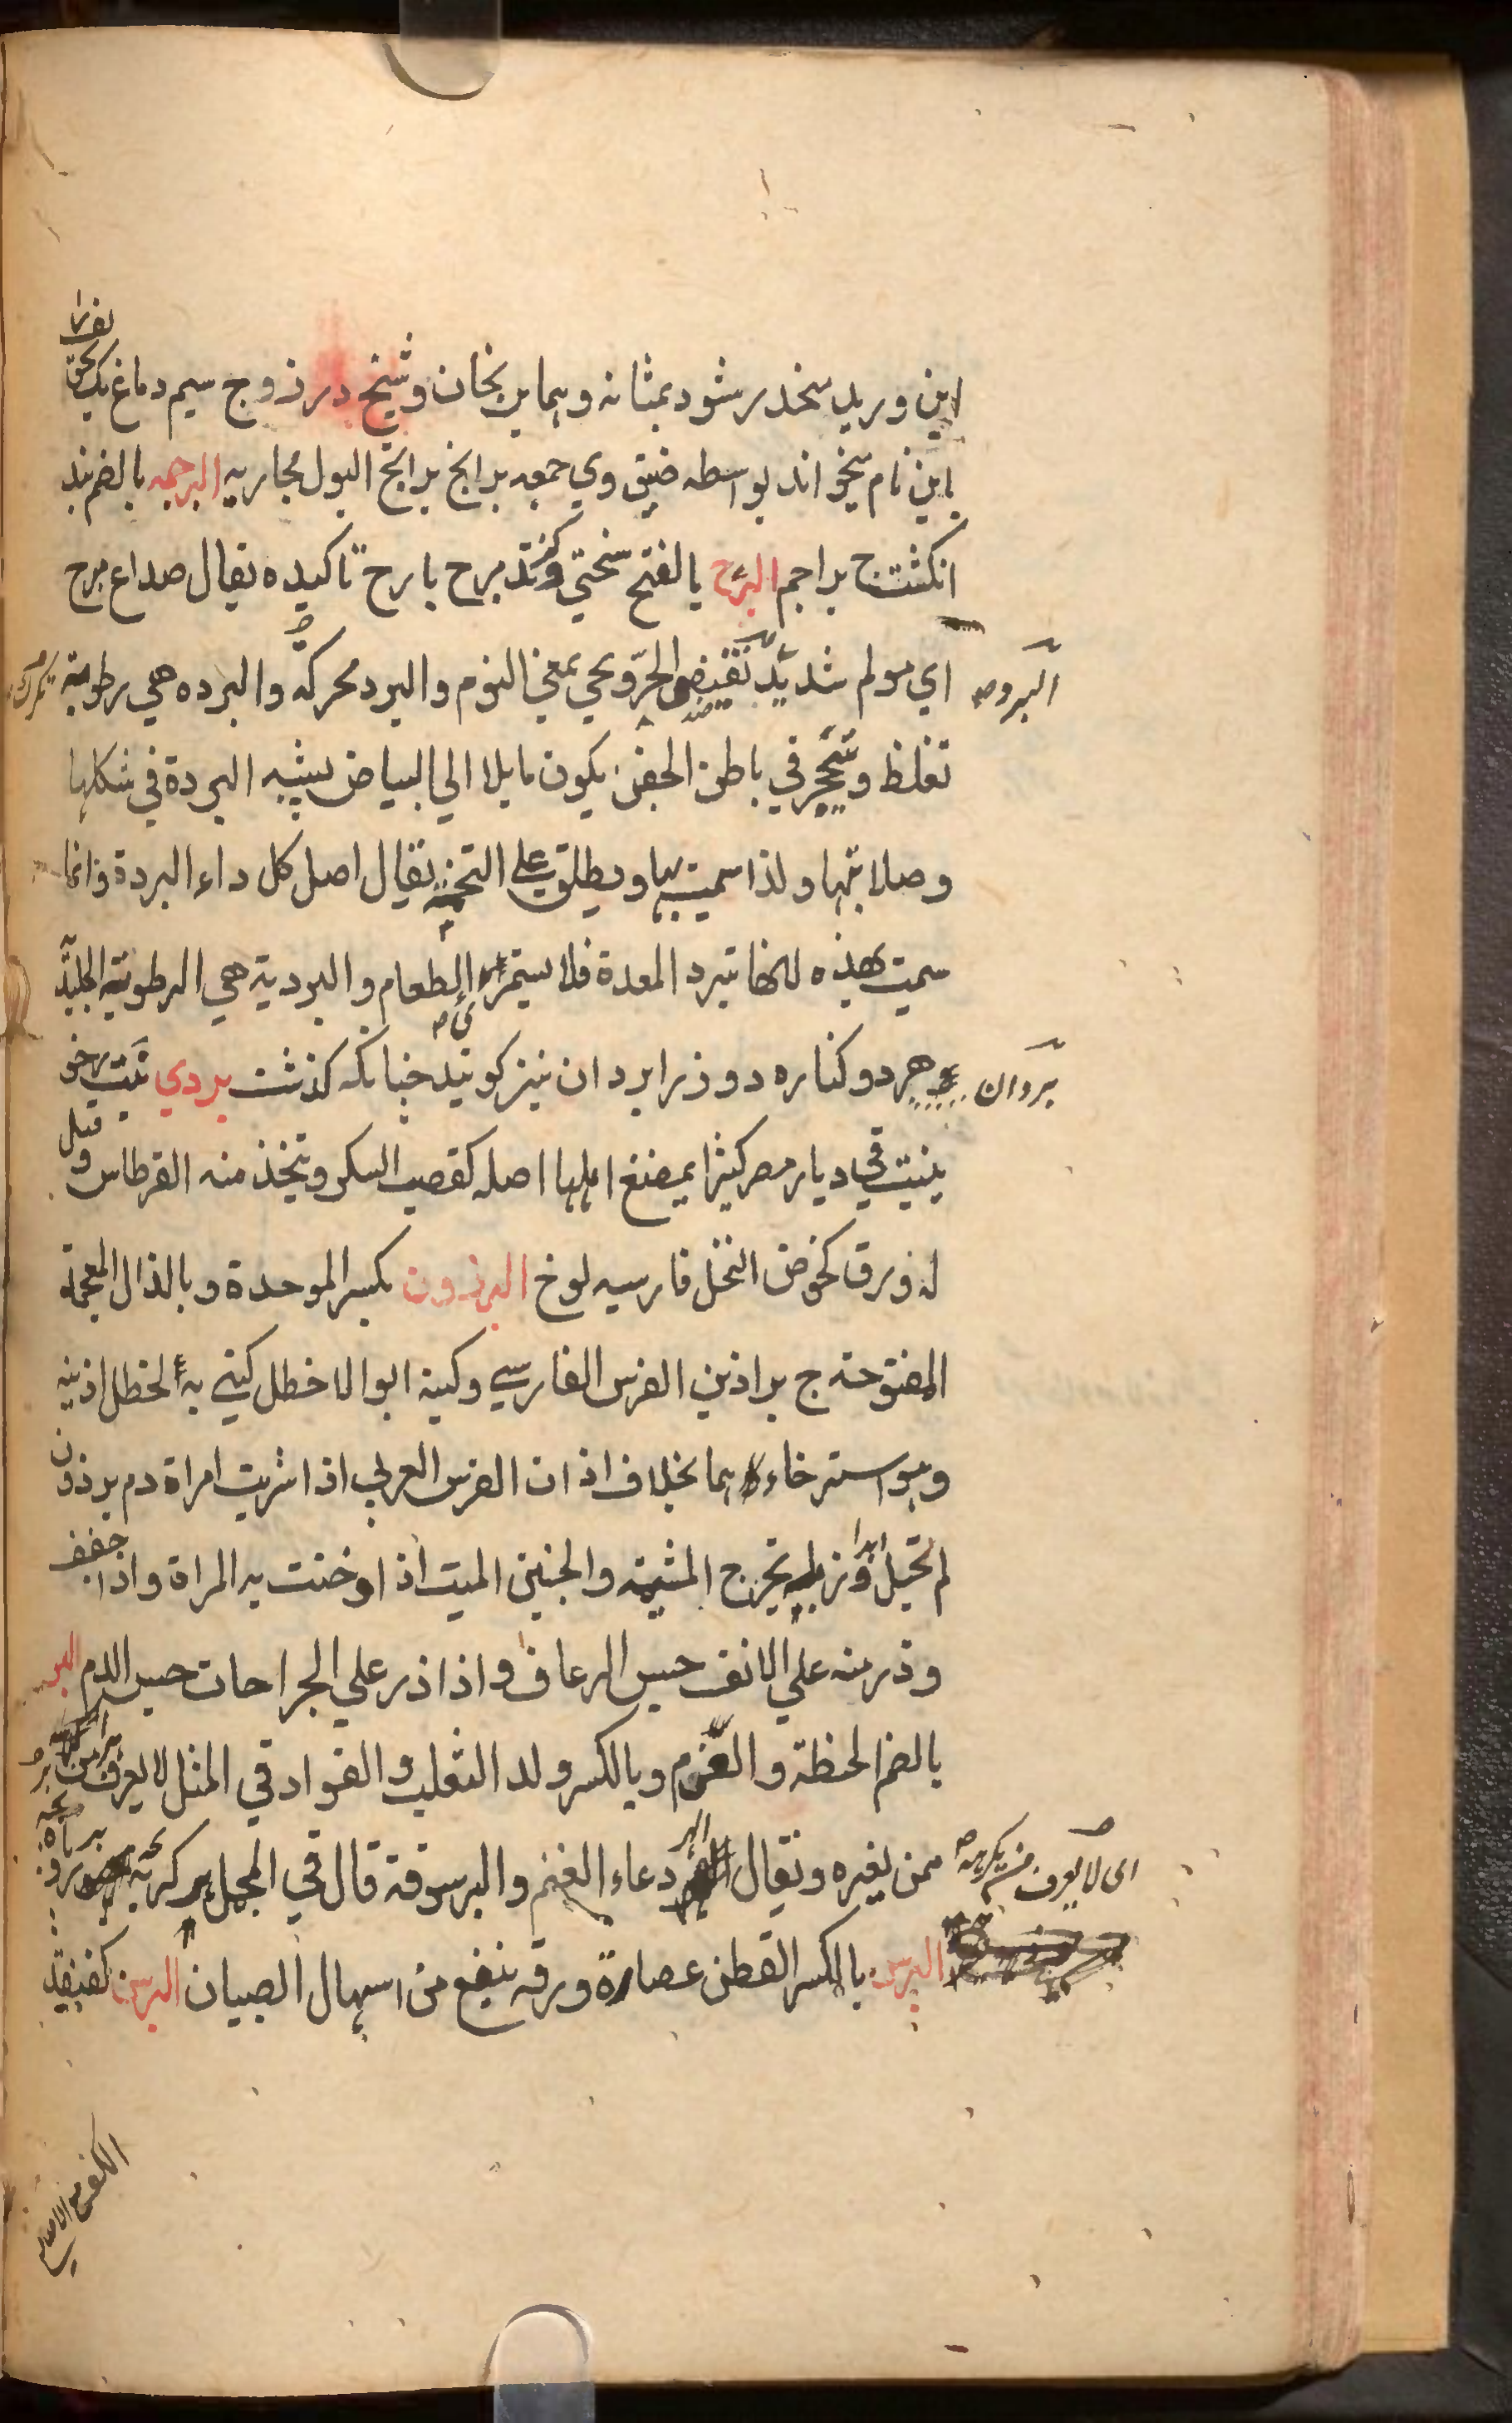 این ورید منحدر شود بمثانه وهما بربخان وشیخ در زوج سیم دماغ یک
باین نام میخواند بواسطه ضیق وی جمعه برابخ برابخ البول مجاریه البرجمه بالضم بند
انکشت ج براجم البرح بالفتح سختی وکزند برح بارح تاکیده یقال صداع مبرح
البرد
ای مولم شدید نقیض الحرّ ویجی بمعنی النوم والبرد محرکه والبرده هی رطوبة
تغلظ وتتحجر فی باطن الجفن یکون مایلا الی البیاض یشبه البردة فی شکلها
وصلابتها ولذا سمیت بها ویطلق علی التخمة یقال اصل کل داء البردة وانما
سمیت بهذه لانها تبرد المعدة فلا یستمرئ الطعام والبردیة هی الرطوبة الجلید
بردان
هر دو کناره دو زرا بردان نیز کویند چنانکه کذشت بردی نبت رخو
ینبت فی دیار مصر کثیرا یمضغ اهلها اصله کقصب السکر ویتخذ منه القرطاس وقیل
له ورق کخوص النخل فارسیه لوخ البرذون بکسر الموحدة وبالذال المعجمة
المفتوحة ج براذین الفرس الفارسی وکنیة ابو الاخطل کنی به لخطل اذنیه
وهو استرخاءهما بخلاف اذان الفرس العربی اذا شربت امراة دم برذون
لم تحبل ابدا وزبله یخرج المشیمة والجنین المیت اذا دخنت به المراة واذا جفف
وذر منه علی الانف حبس الرعاف واذا ذر علی الجراحات حبس الدم البر
بالضم الحنطة وبالکسر ولد الثعلب والفواد فی المثل لا یعرف هرا من بر
ای لا یعرف من یکرهه
ممن یبره ویقال البر دعاء الغنم والبر سوقة قال فی المجمل
البرس بالکسر القطن عصارة ورقه ینفع من اسهال الصبیان البرسن کقنفذ